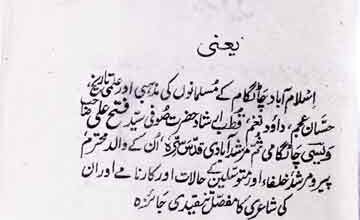 یعنی
اسلام آباد چاٹگام کے مسلمانوں کی مذہبی اور علمی تاریخ،
حسّانِ عجم، داؤد نغم، قطب ارشاد حضرت صوفی سید فتح علی صاحب
ویسی چاٹگامی ثم مرشد آبادی قدس سرہ، اُن کے والد محترم
پیر و مرشد خلفاء اور متوسلین کے حالات اور کارنامے اور ان
کی شاعری کا مفصل تنقیدی جائزہ